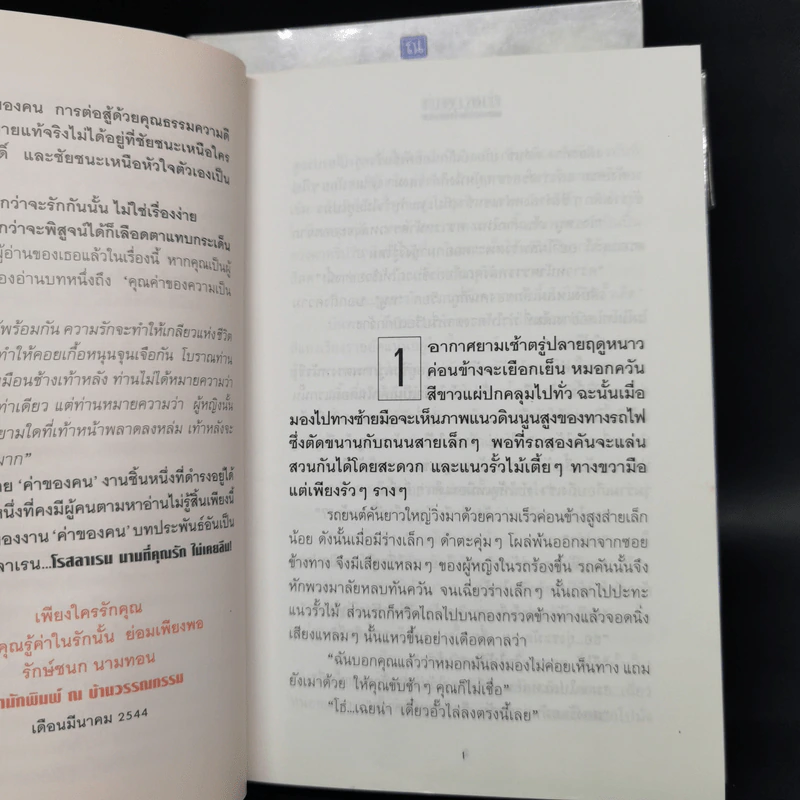 ของคน การต่อสู้ด้วยคุณธรรมความดี
ายแท้จริงไม่ได้อยู่ที่ชัยชนะเหนือใคร
ดิ์ และชัยชนะเหนือหัวใจตัวเองเป็น
กว่าจะรักกันนั้น ไม่ใช่เรื่องง่าย
กว่าจะพิสูจน์ได้ก็เลือดตาแทบกระเด็น
ผู้อ่านของเธอแล้วในเรื่องนี้ หากคุณเป็นผู้
องอ่านบทหนึ่งถึง ‘คุณค่าของความเป็น
พร้อมกัน ความรักจะทำให้เกลียวแห่งชีวิต
ทำให้คอยเกื้อหนุนจุนเจือกัน โบราณท่าน
มือนช้างเท้าหลัง ท่านไม่ได้หมายความว่า
ท่าเดียว แต่ท่านหมายความว่า ผู้หญิงนั้น
ยามใดที่เท้าหน้าพลาดลงหล่ม เท้าหลังจะ
มาก”
ย ‘ค่าของคน’ งานชิ้นหนึ่งที่ดำรงอยู่ได้
หนึ่งที่คงมีผู้คนตามหาอ่านไม่รู้สิ้นเพียงนี้
ของงาน ‘ค่าของคน’ บทประพันธ์อันเป็น
ลาเรน...โรสลาเรน นามที่คุณรัก ไม่เคยลืม!
เพียงใครรักคุณ
คุณรู้ค่าในรักนั้น ย่อมเพียงพอ
รักษ์ชนก นามทอน
านักพิมพ์ ณ บ้านวรรณกรรม
เดือนมีนาคม 2544
1
อากาศยามเช้าตรู่ปลายฤดูหนาว
ค่อนข้างจะเยือกเย็น หมอกควัน
สีขาวแผ่ปกคลุมไปทั่ว ฉะนั้นเมื่อ
มองไปทางซ้ายมือจะเห็นภาพแนวดินนูนสูงของทางรถไฟ
ซึ่งตัดขนานกับถนนสายเล็กๆ พอที่รถสองคันจะแล่น
สวนกันได้โดยสะดวก และแนวรั้วไม้เตี้ยๆ ทางขวามือ
แต่เพียงรัวๆ รางๆ
รถยนต์คันยาวใหญ่วิ่งมาด้วยความเร็วค่อนข้างสูงส่ายเล็ก
น้อย ดังนั้นเมื่อมีร่างเล็กๆ ดำตะคุ่มๆ โผล่พ้นออกมาจากซอย
ข้างทาง จึงมีเสียงแหลมๆ ของผู้หญิงในรถร้องขึ้น รถคันนั้นจึง
หักพวงมาลัยหลบทันควัน จนเฉี่ยวร่างเล็กๆ นั้นถลาไปปะทะ
แนวรั้วไม้ ส่วนรถก็หวิดไถลไปบนกองกรวดข้างทางแล้วจอดนิ่ง
เสียงแหลมๆ นั้นแหวขึ้นอย่างเดือดดาลว่า
“ฉันบอกคุณแล้วว่าหมอกมันลงมองไม่ค่อยเห็นทาง แถม
ยังเมาด้วย ให้คุณขับช้าๆ คุณก็ไม่เชื่อ”
“โฮ่...เฉยน่า เดี๋ยวอั๊วไล่ลงตรงนี้เลย”
1